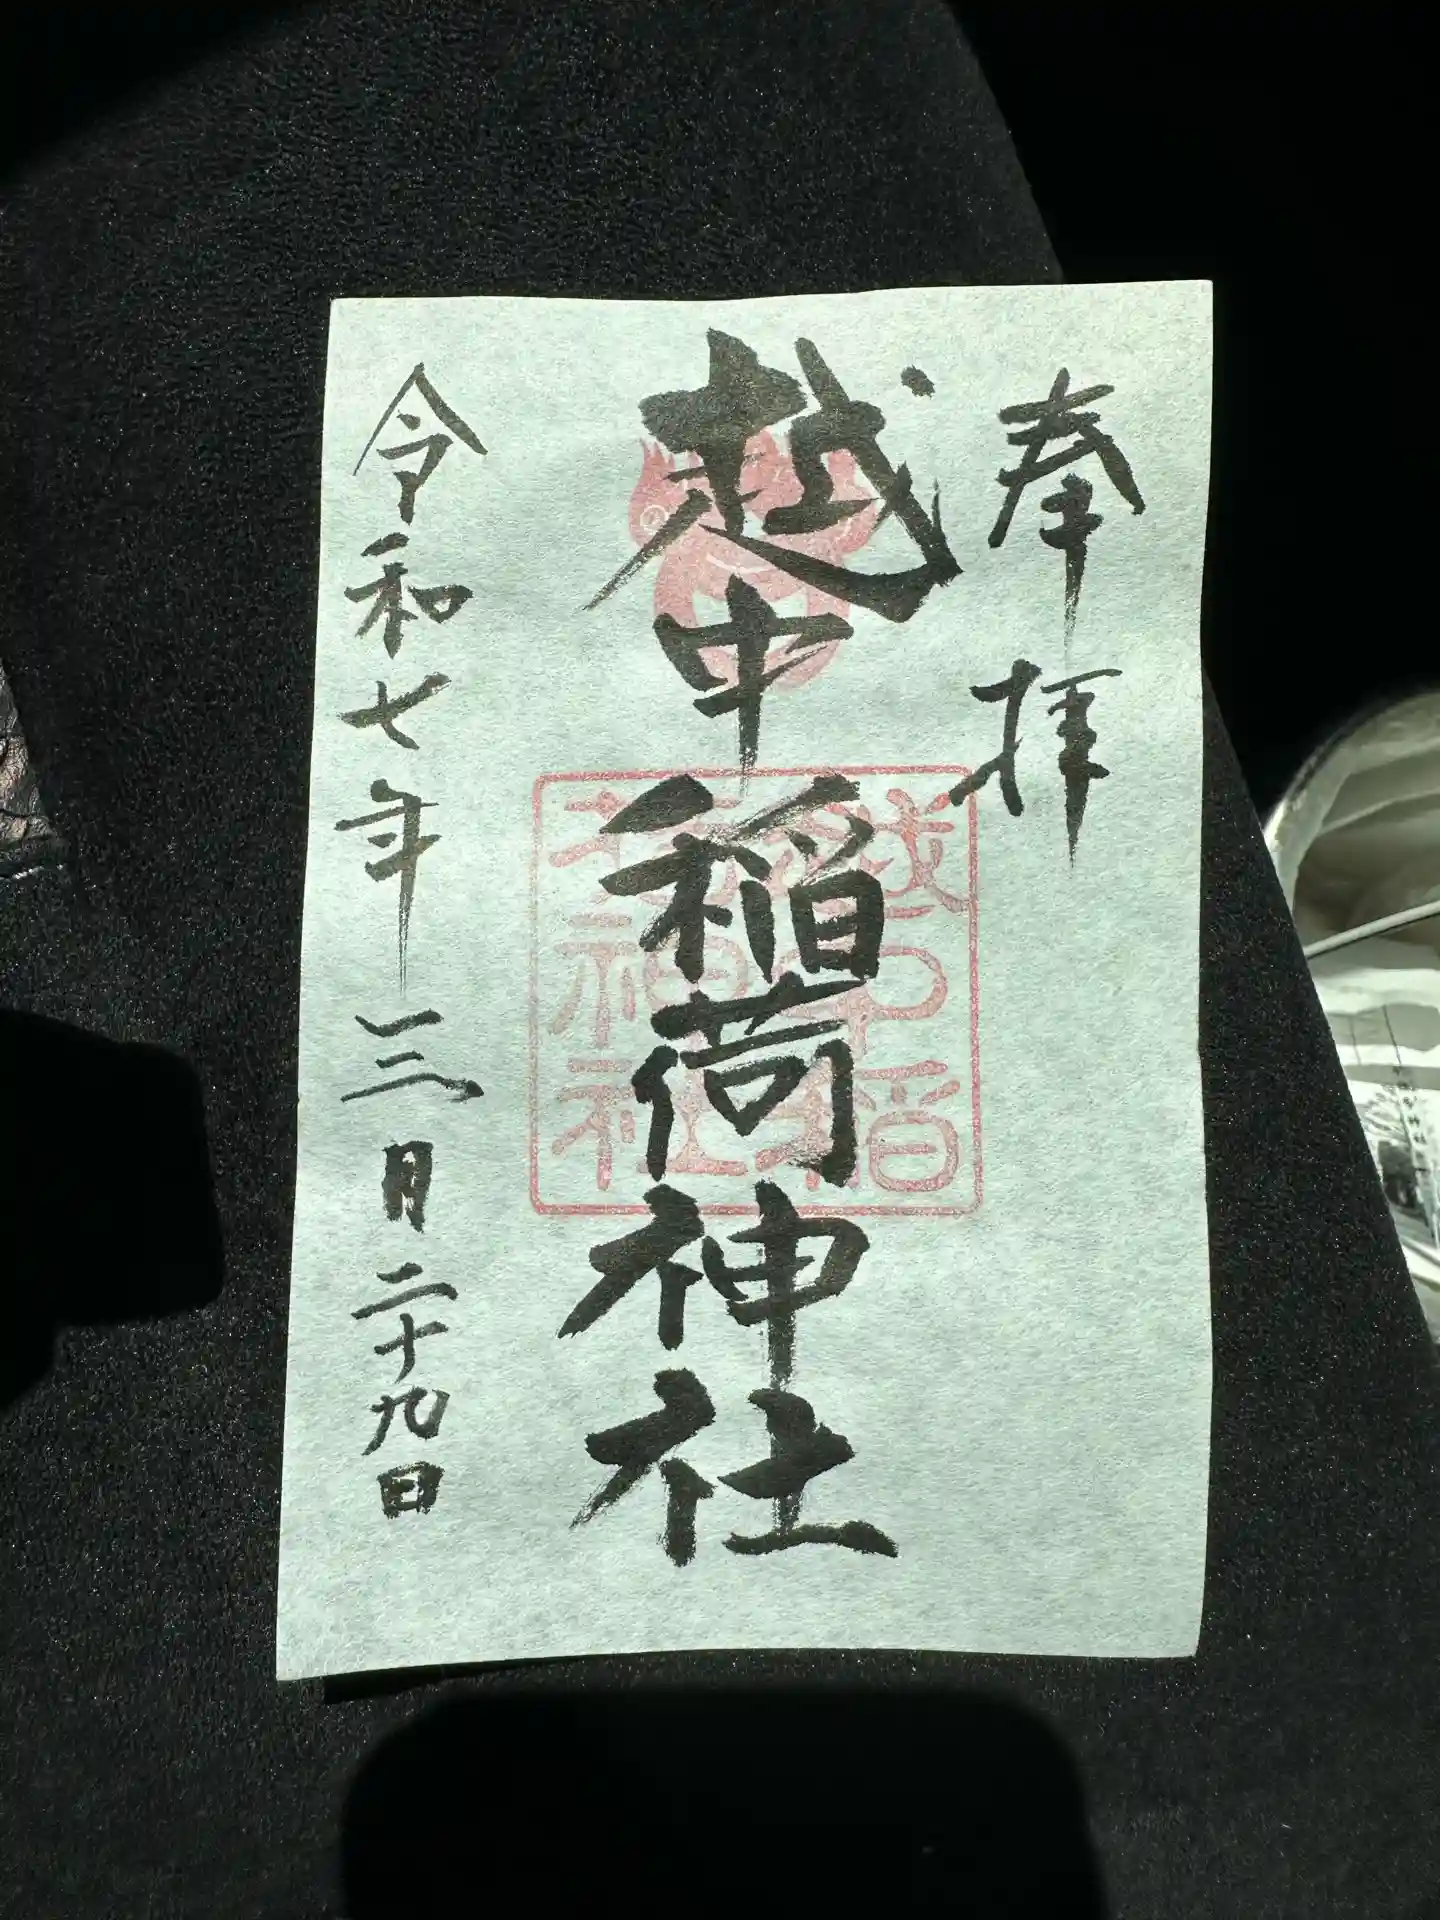 奉拝
越中稲荷神社
越中稲荷神社
令和七年三月二十九日